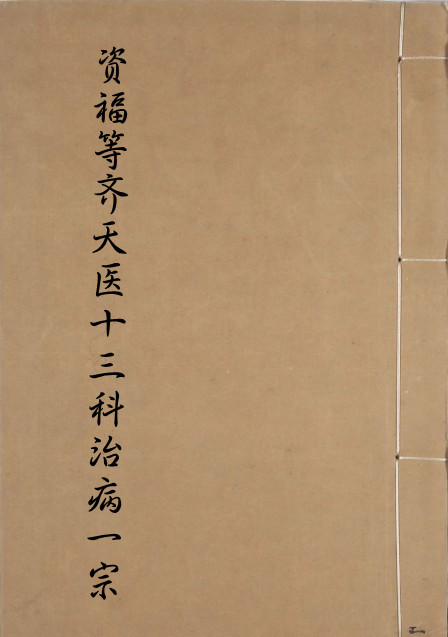 资福等齐天医十三科治病一宗